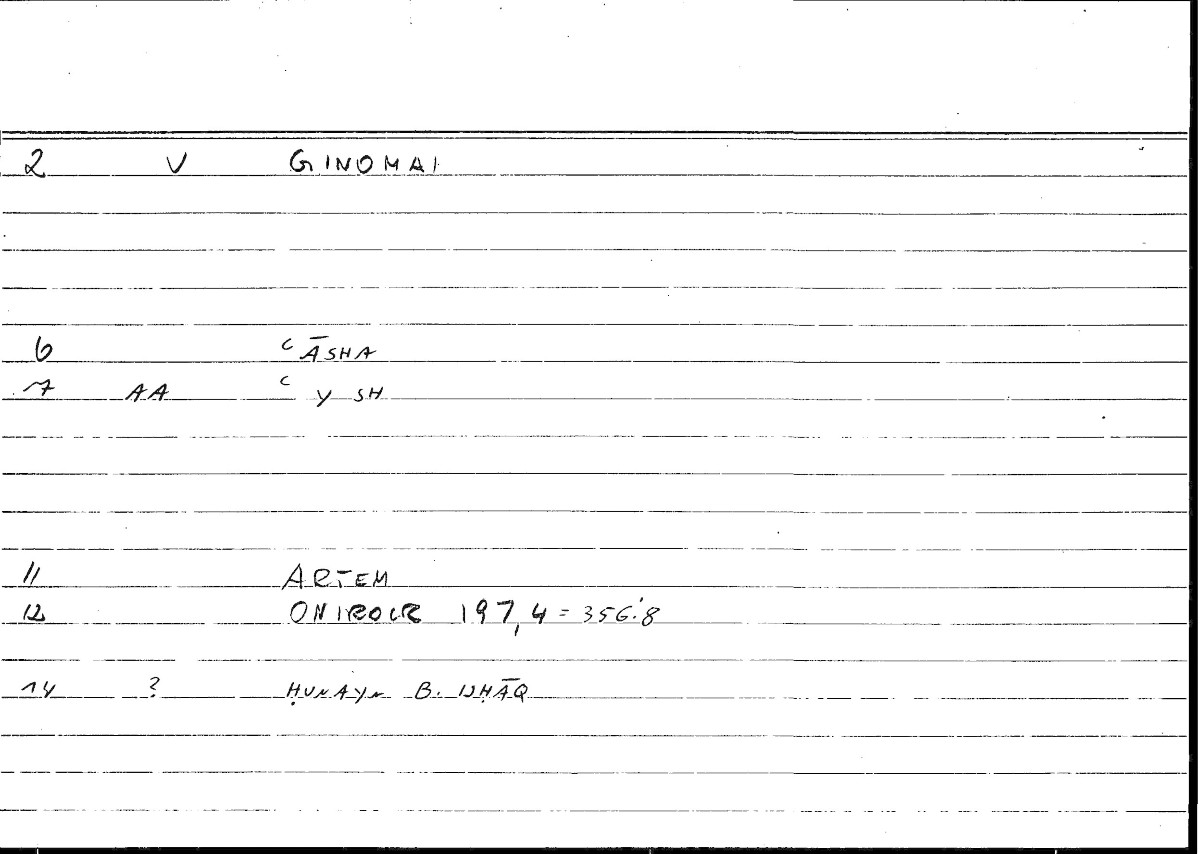 2 V GINOMAI
6 ʿĀSHA
7 AA ʿ Y SH
11 ARTEM
12 ONIROCR 197,4 = 356:8
14 ? ḤUNAYN B. ISḤĀQ